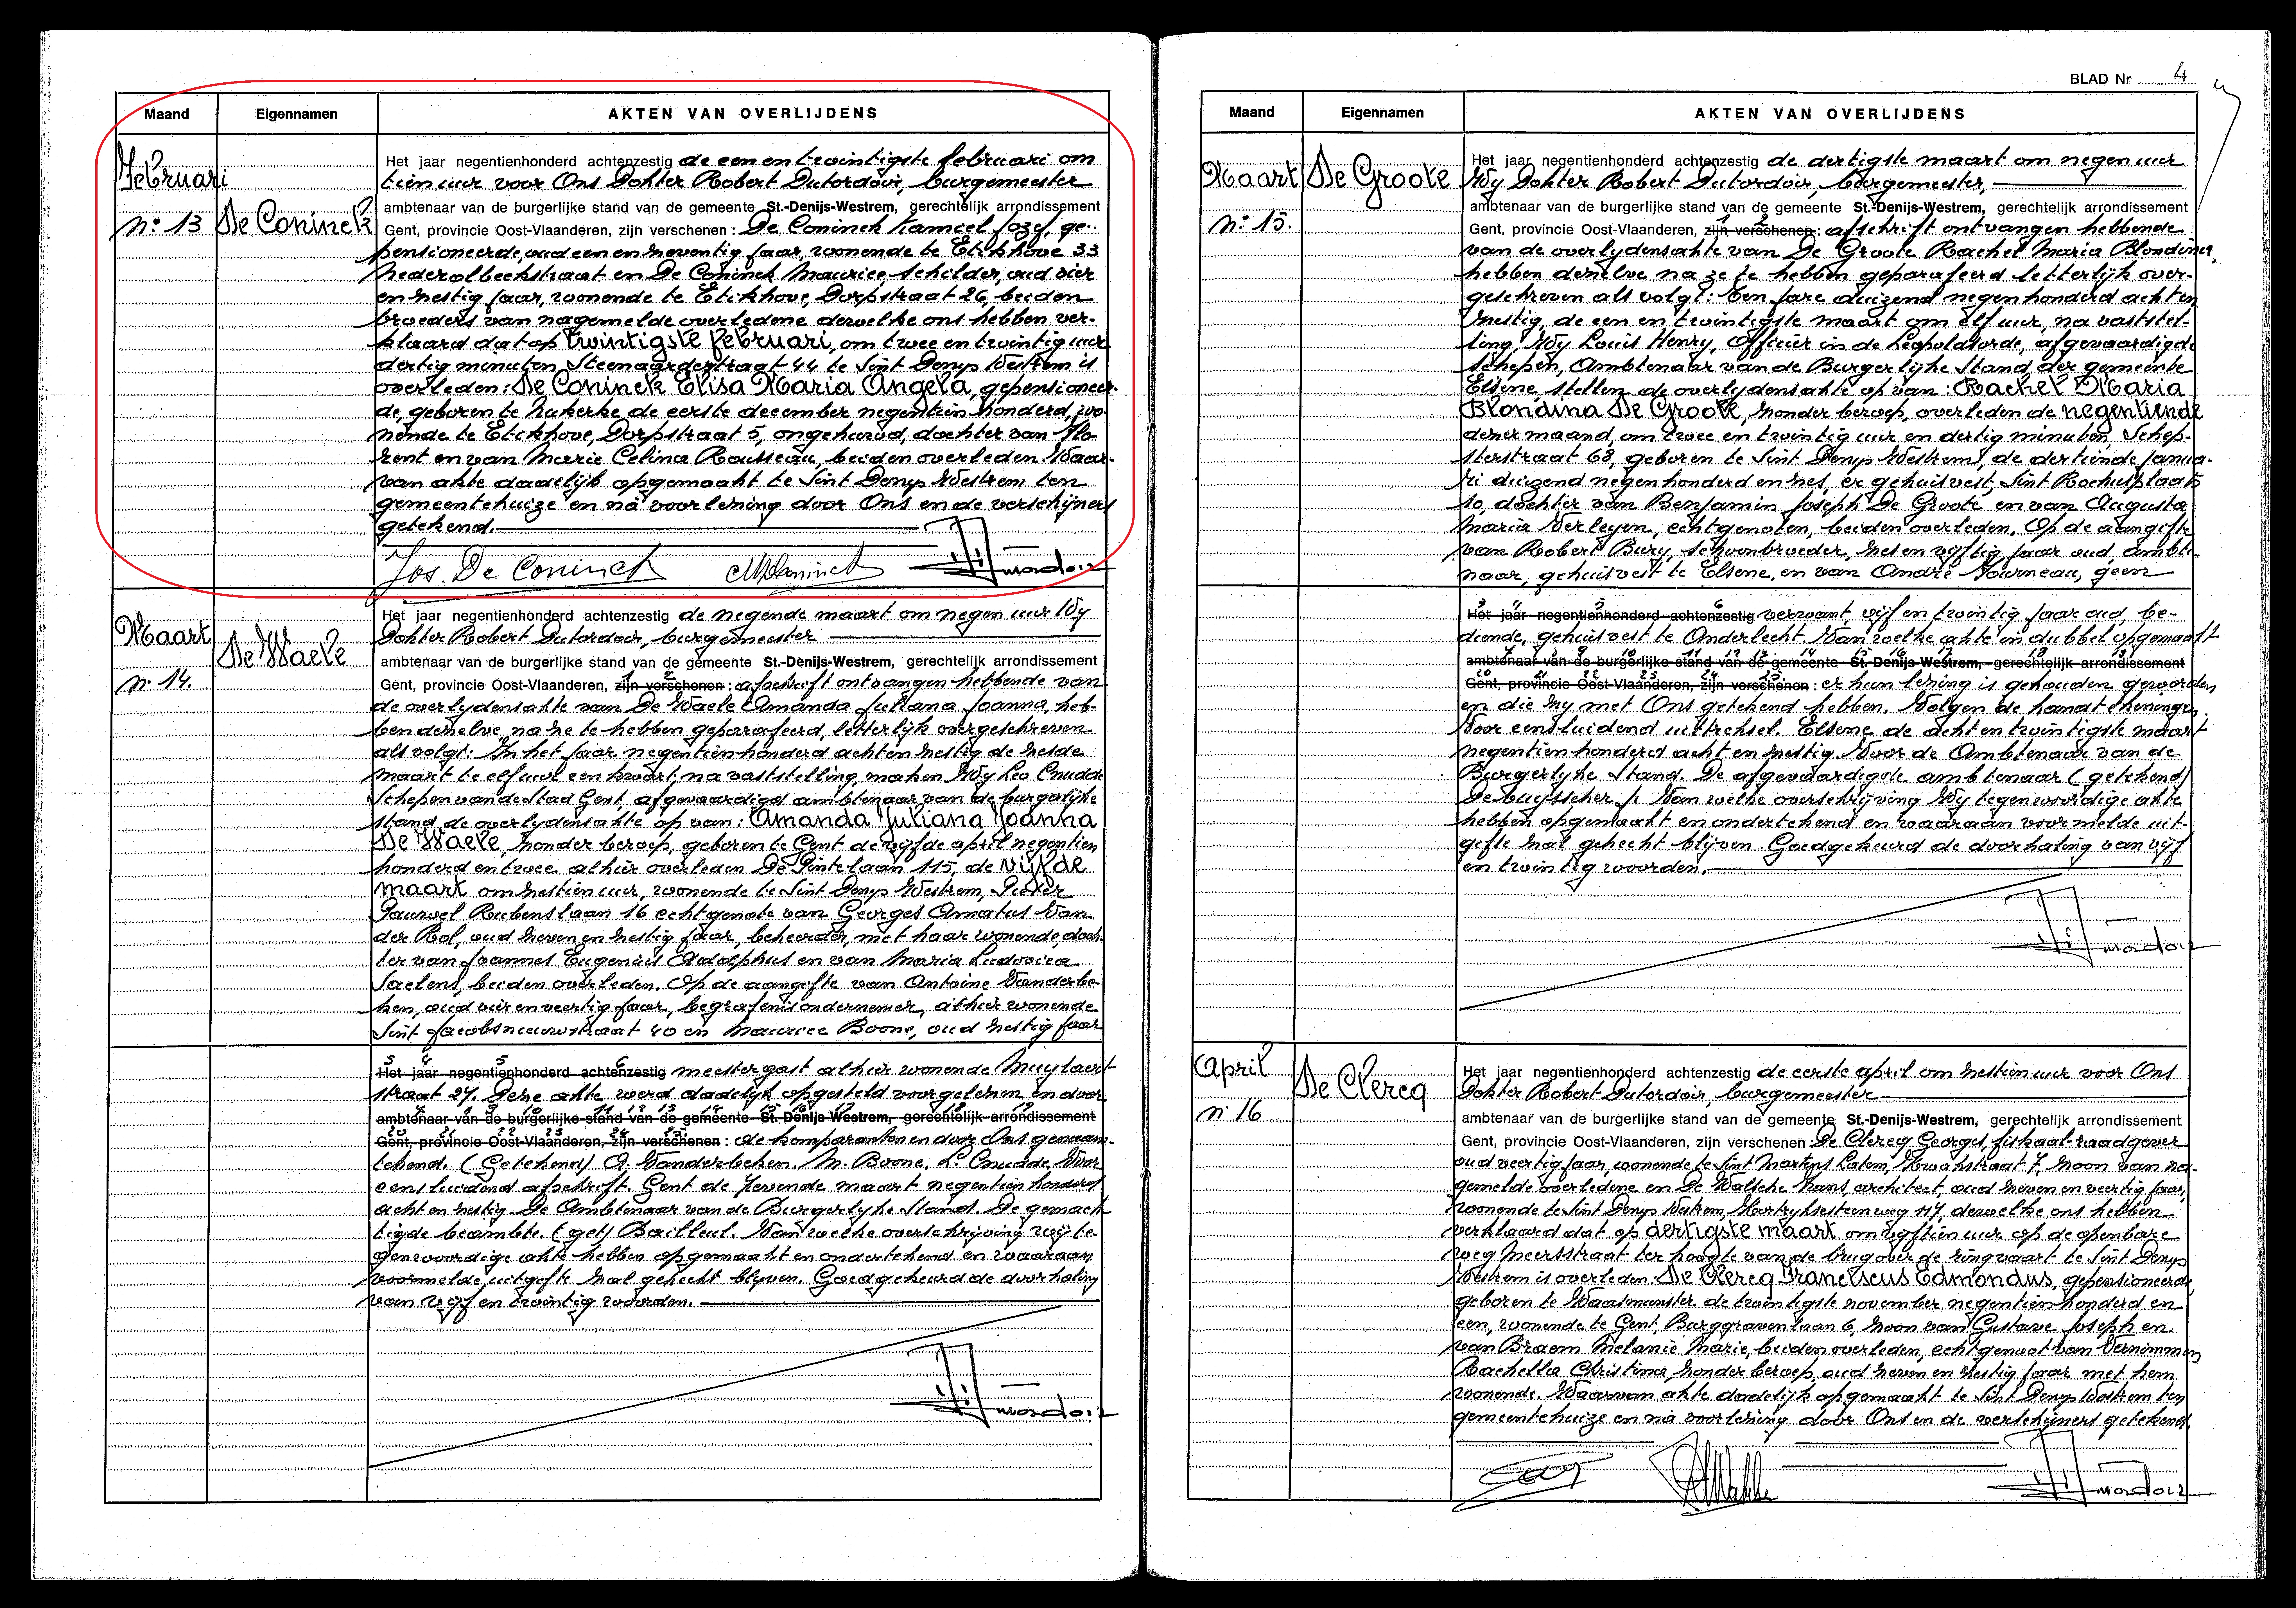 BLAD Nr 4
Maand Eigennamen AKTEN VAN OVERLIJDENS
Februari
n° 13 De Coninck
Het jaar negentienhonderd achtenzestig de een en twintigste februari om
tien uur voor Ons Dokter Robert Dutordoir, burgemeester
ambtenaar van de burgerlijke stand van de gemeente St.-Denijs-Westrem, gerechtelijk arrondissement
Gent, provincie Oost-Vlaanderen, zijn verschenen : De Coninck Kamiel Jozef, ge-
pensioneerde, oud een en zeventig jaar, wonende te Etikhove 33
Nederolbeekstraat en De Coninck Maurice, schilder, oud vier
en zestig jaar, wonende te Etikhove, Dorpstraat 26, beiden
broeders van nagemelde overledene dewelke ons hebben ver-
klaard dat op twintigste februari, om twee en twintig uur
dertig minuten, Steenaardestraat 44 te Sint Denys Westrem is
overleden : De Coninck Elisa Maria Angela, gepensioneer-
de, geboren te Nukerke de eerste december negentien honderd, wo-
nende te Etikhove, Dorpstraat 5, ongehuwd, dochter van Flo-
rent en van Marie Celina Rousseau, beiden overleden. Waar-
van akte dadelijk opgemaakt te Sint Denys Westrem ten
gemeentehuize en na voorlezing door Ons en de verschijners
getekend.
Jos. De Coninck MDeConinck Dutordoir
Maart
n° 14. De Waele
Het jaar negentienhonderd achtenzestig de negende maart om negen uur Wy
Dokter Robert Dutordoir, burgemeester
ambtenaar van de burgerlijke stand van de gemeente St.-Denijs-Westrem, gerechtelijk arrondissement
1 2
Gent, provincie Oost-Vlaanderen, zijn verschenen : afschrift ontvangen hebbende van
de overlydensakte van De Waele Amanda Juliana Joanna, heb-
ben dezelve, na ze te hebben geparafeerd, letterlijk overgeschreven
als volgt: In het jaar negentienhonderd acht en zestig de zesde
maart te elf uur een kwart, na vaststelling maken Wy Leo Cnudde
Schepen van de Stad Gent, afgevaardigd ambtenaar van de burgerlijke
stand de overlydensakte op van : Amanda Juliana Joanna
De Waele, zonder beroep, geboren te Gent de vijfde april negentien
honderd en twee, alhier overleden De Pintelaan 115, de vijfde
maart om zestien uur, wonende te Sint Denys Westrem, Pieter
Pauwel Rubenslaan 16 echtgenote van Georges Amatus Van
der Rol, oud zeven en zestig jaar, beheerder, met haar wonende, doch-
ter van Joannes Eugenius Adolphus en van Maria Ludovica
Saelens, beiden overleden. Op de aangifte van Antoine Vanderbe-
ken, oud vier en veertig jaar, begrafenisondernemer, alhier wonende
Sint Jacobsnieuwstraat 40 en Maurice Boone, oud zestig jaar
3 4 5 6
Het jaar negentienhonderd achtenzestig meestergast alhier wonende Muylaert-
straat 27. Deze akte werd dadelijk opgesteld voorgelezen en door
7 8 9 10 11 12 13 14 15 16 17 18 19
ambtenaar van de burgerlijke stand van de gemeente St.-Denijs-Westrem, gerechtelijk arrondissement
20 21 22 23 24 25
Gent, provincie Oost-Vlaanderen, zijn verschenen : de komparanten en door Ons genaam-
tekend. (Getekend) A. Vanderbeken. M. Boone. L. Cnudde. Voor
eensluidend afschrift. Gent de zevende maart negentien honderd
acht en zestig. De Ambtenaar van de Burgerlyke Stand. De gemach-
tigde beambte. (get) Bailleul. Van welke overschrijving wij te-
genwoordige akte hebben opgemaakt en ondertekend en waaraan
voormelde uitgifte zal gehecht blyven. Goedgekeurd de doorhaling
van vijf en twintig woorden.
Dutordoir
Maand Eigennamen AKTEN VAN OVERLIJDENS
Maart De Groote
n° 15.
Het jaar negentienhonderd achtenzestig de dertigste maart om negen uur
Wy Dokter Robert Dutordoir, burgemeester,
ambtenaar van de burgerlijke stand van de gemeente St.-Denijs-Westrem, gerechtelijk arrondissement
1 2
Gent, provincie Oost-Vlaanderen, zijn verschenen : afschrift ontvangen hebbende
van de overlydensakte van De Groote Rachel Maria Blondina,
hebben dezelve na ze te hebben geparafeerd letterlijk over-
geschreven als volgt : Ten jare duizend negenhonderd acht en
zestig, de een en twintigste maart om elf uur, na vaststel-
ling, Wy Louis Henry, Officier in de Leopoldsorde, afgevaardigde
Schepen, Ambtenaar van de Burgerlyke Stand, der gemeente
Elsene stellen de overlydensakte op van : Rachel Maria
Blondina De Groote, zonder beroep, overleden de negentiende
dezer maand, om twee en twintig uur en dertig minuten, Schep-
sterstraat 68, geboren te Sint Denys Westrem, de dertiende janua-
ri duizend negenhonderd en zes, er gehuisvest, Sint Rochusplaats
10, dochter van Benjamin Joseph De Groote en van Augusta
Maria Verleyen, echtgenoten, beiden overleden. Op de aangifte
van Robert Bury, schoonbroeder, zes en vijftig jaar oud, ambte-
naar, gehuisvest te Elsene, en van André Journeau, geen
3 4 5 6
Het jaar negentienhonderd achtenzestig verwant, vijf en twintig jaar oud, be-
diende, gehuisvest te Anderlecht. Van welke akte in dubbel opgemaakt
7 8 9 10 11 12 13 14 15 16 17 18 19
ambtenaar van de burgerlijke stand van de gemeente St.-Denijs-Westrem, gerechtelijk arrondissement
20 21 22 23 24 25
Gent, provincie Oost-Vlaanderen, zijn verschenen : er hun lezing is gehouden geworden
en die zy met Ons getekend hebben. Volgen de handtekeningen.
Voor eensluidend uittreksel. Elsene de acht en twintigste maart
negentienhonderd acht en zestig. Voor de Ambtenaar van de
Burgerlyke Stand. De afgevaardigde ambtenaar (getekend)
De Van welke overschrijving Wy tegenwoordige akte
hebben opgemaakt en ondertekend en waaraan voormelde uit-
gifte zal gehecht blijven. Goedgekeurd de doorhaling van vijf
en twintig woorden.
Dutordoir
April De Clercq
n° 16
Het jaar negentienhonderd achtenzestig de eerste april om zestien uur voor Ons
Dokter Robert Dutordoir, burgemeester
ambtenaar van de burgerlijke stand van de gemeente St.-Denijs-Westrem, gerechtelijk arrondissement
Gent, provincie Oost-Vlaanderen, zijn verschenen : De Clercq Georges, fiskaal-raadgever
oud veertig jaar, wonende te Sint Martens Latem, Kwakstraat 7, zoon van na-
gemelde overledene en De Walsche Hans, architect, oud zeven en veertig jaar,
wonende te Sint Denys Westrem, Kortryksesteenweg 117, dewelke ons hebben
verklaard dat op dertigste maart om vyftien uur op de openbare
weg Meersstraat ter hoogte van de brug over de ringvaart te Sint Denys
Westrem is overleden : De Clercq Franciscus Edmondus, gepensioneerde,
geboren te Waasmunster de twintigste november negentien honderd en
een, wonende te Gent, Burggravenlaan 6, zoon van Gustave Joseph en
van Braem Melanie Marie, beiden overleden, echtgenoot van Vernimmen
Rachella Christina, zonder beroep, oud zeven en zestig jaar met hem
wonende. Waarvan akte dadelijk opgemaakt te Sint Denys Westrem ten
gemeentehuize en na voorlezing door Ons en de verschijners getekend.
Dutordoir